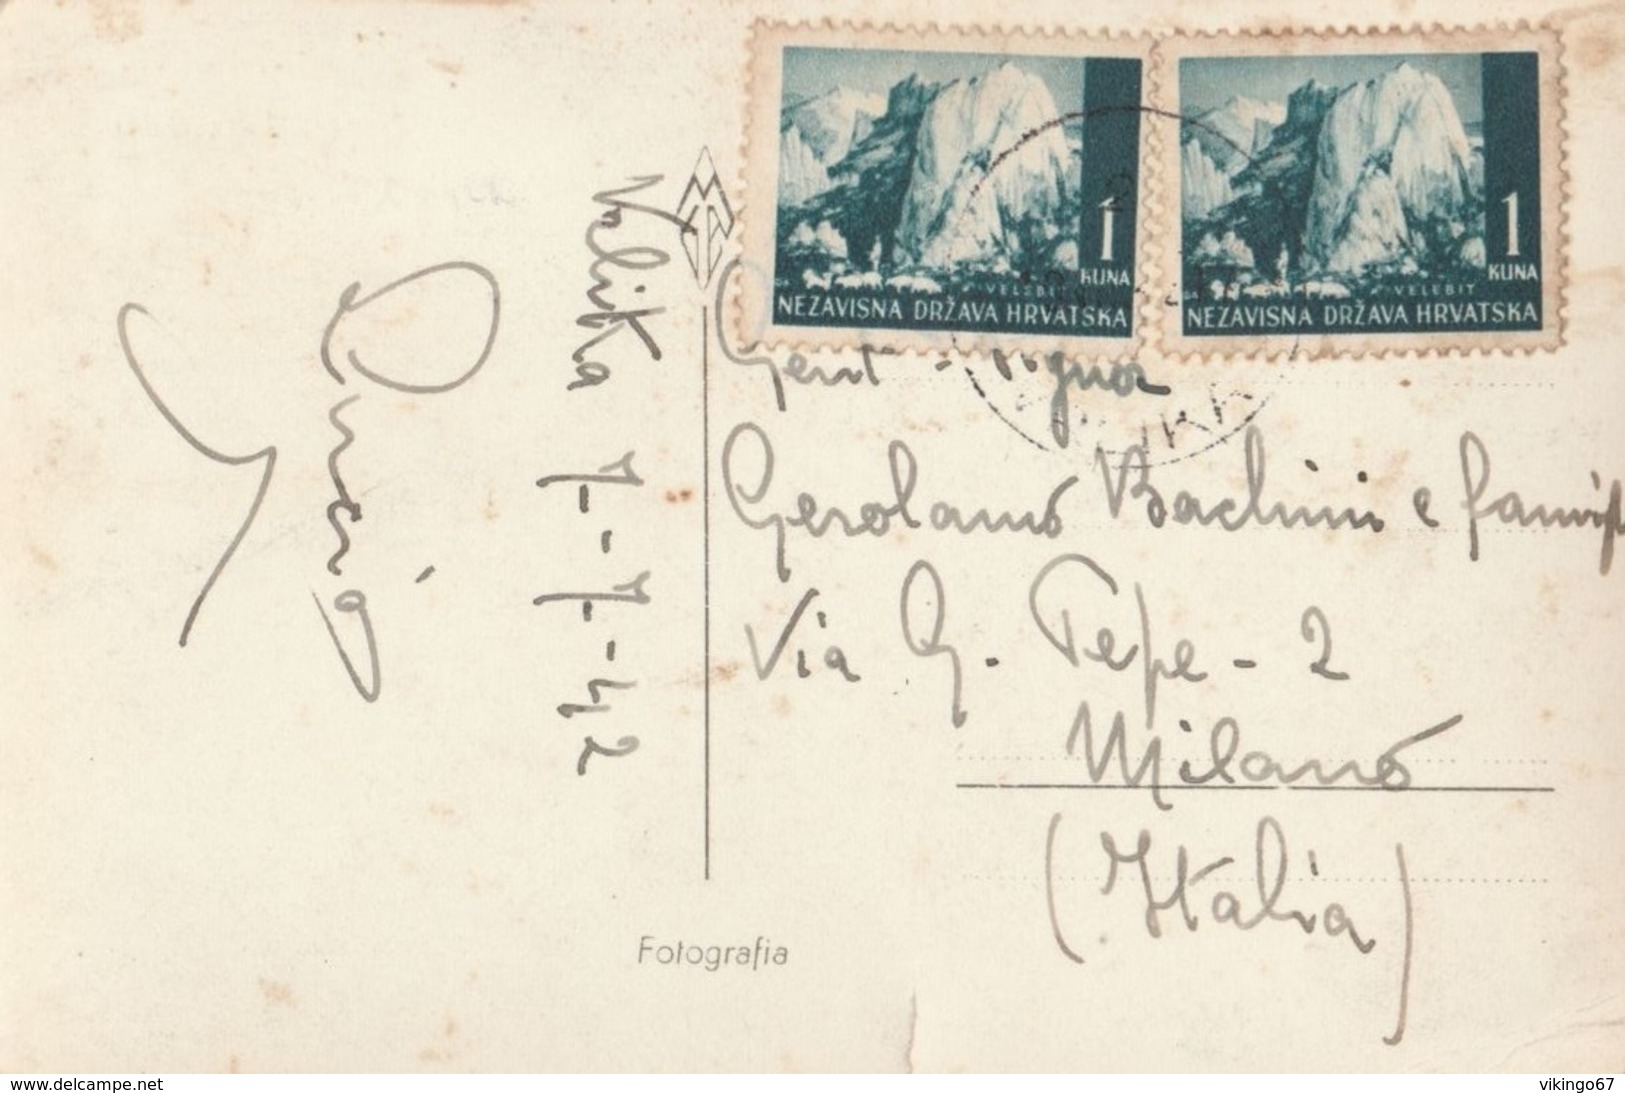 1
KUNA
VELEBIT
NEZAVISNA DRŽAVA HRVATSKA
1
KUNA
VELEBIT
NEZAVISNA DRŽAVA HRVATSKA
Velika 7-7-42
Gent. Signora
Gerolamo Bachini e famiglia
Via G. Pepe - 2
Milano
(Italia)
Fotografia
www.delcampe.net
vikingo67